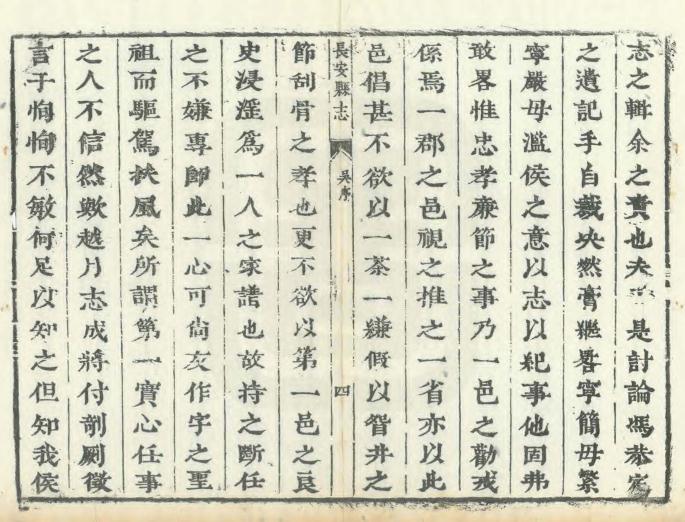 志之輯余之責也夫是討論馮恭定
之遺記手自裁央然膏繼晷寧簡毋繁
寧嚴毋濫侯之意以志以紀事他固弗
敢畧惟忠孝亷節之事乃一邑之勸戒
係焉一郡之邑視之推之一省亦以此
邑倡甚不欲以一茶一縑假以眢井之
長安縣志
吳序
四
節刮骨之孝也更不欲以第一邑之良
史浸淫爲一人之家譜也故持之斷任
之不嫌專卽此一心可尚友作字之聖
祖而驅駕扶風矣所謂第一實心任事
之人不信然歟越月志成將付剞劂徵
言于恂恂不敏何足以知之但知我侯